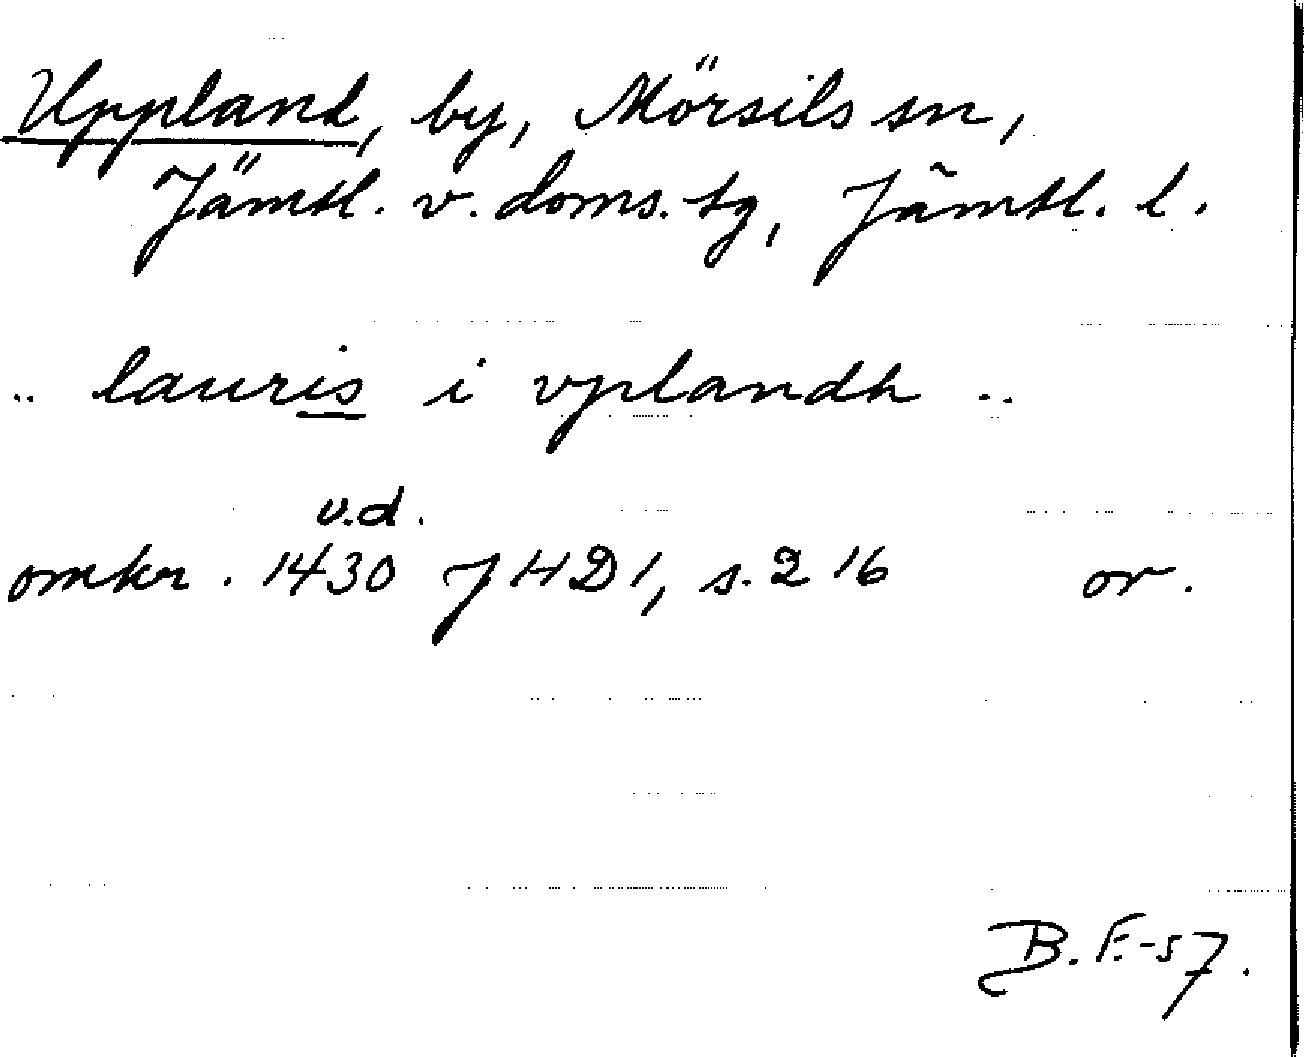 Uppland, by, Mörsils sn,
Jämtl. v. doms. tg, Jämtl. l.
.. lauris i vplandh ..
u.d.
omkr. 1430 JHD 1, s. 216 or.
B. F. -57.